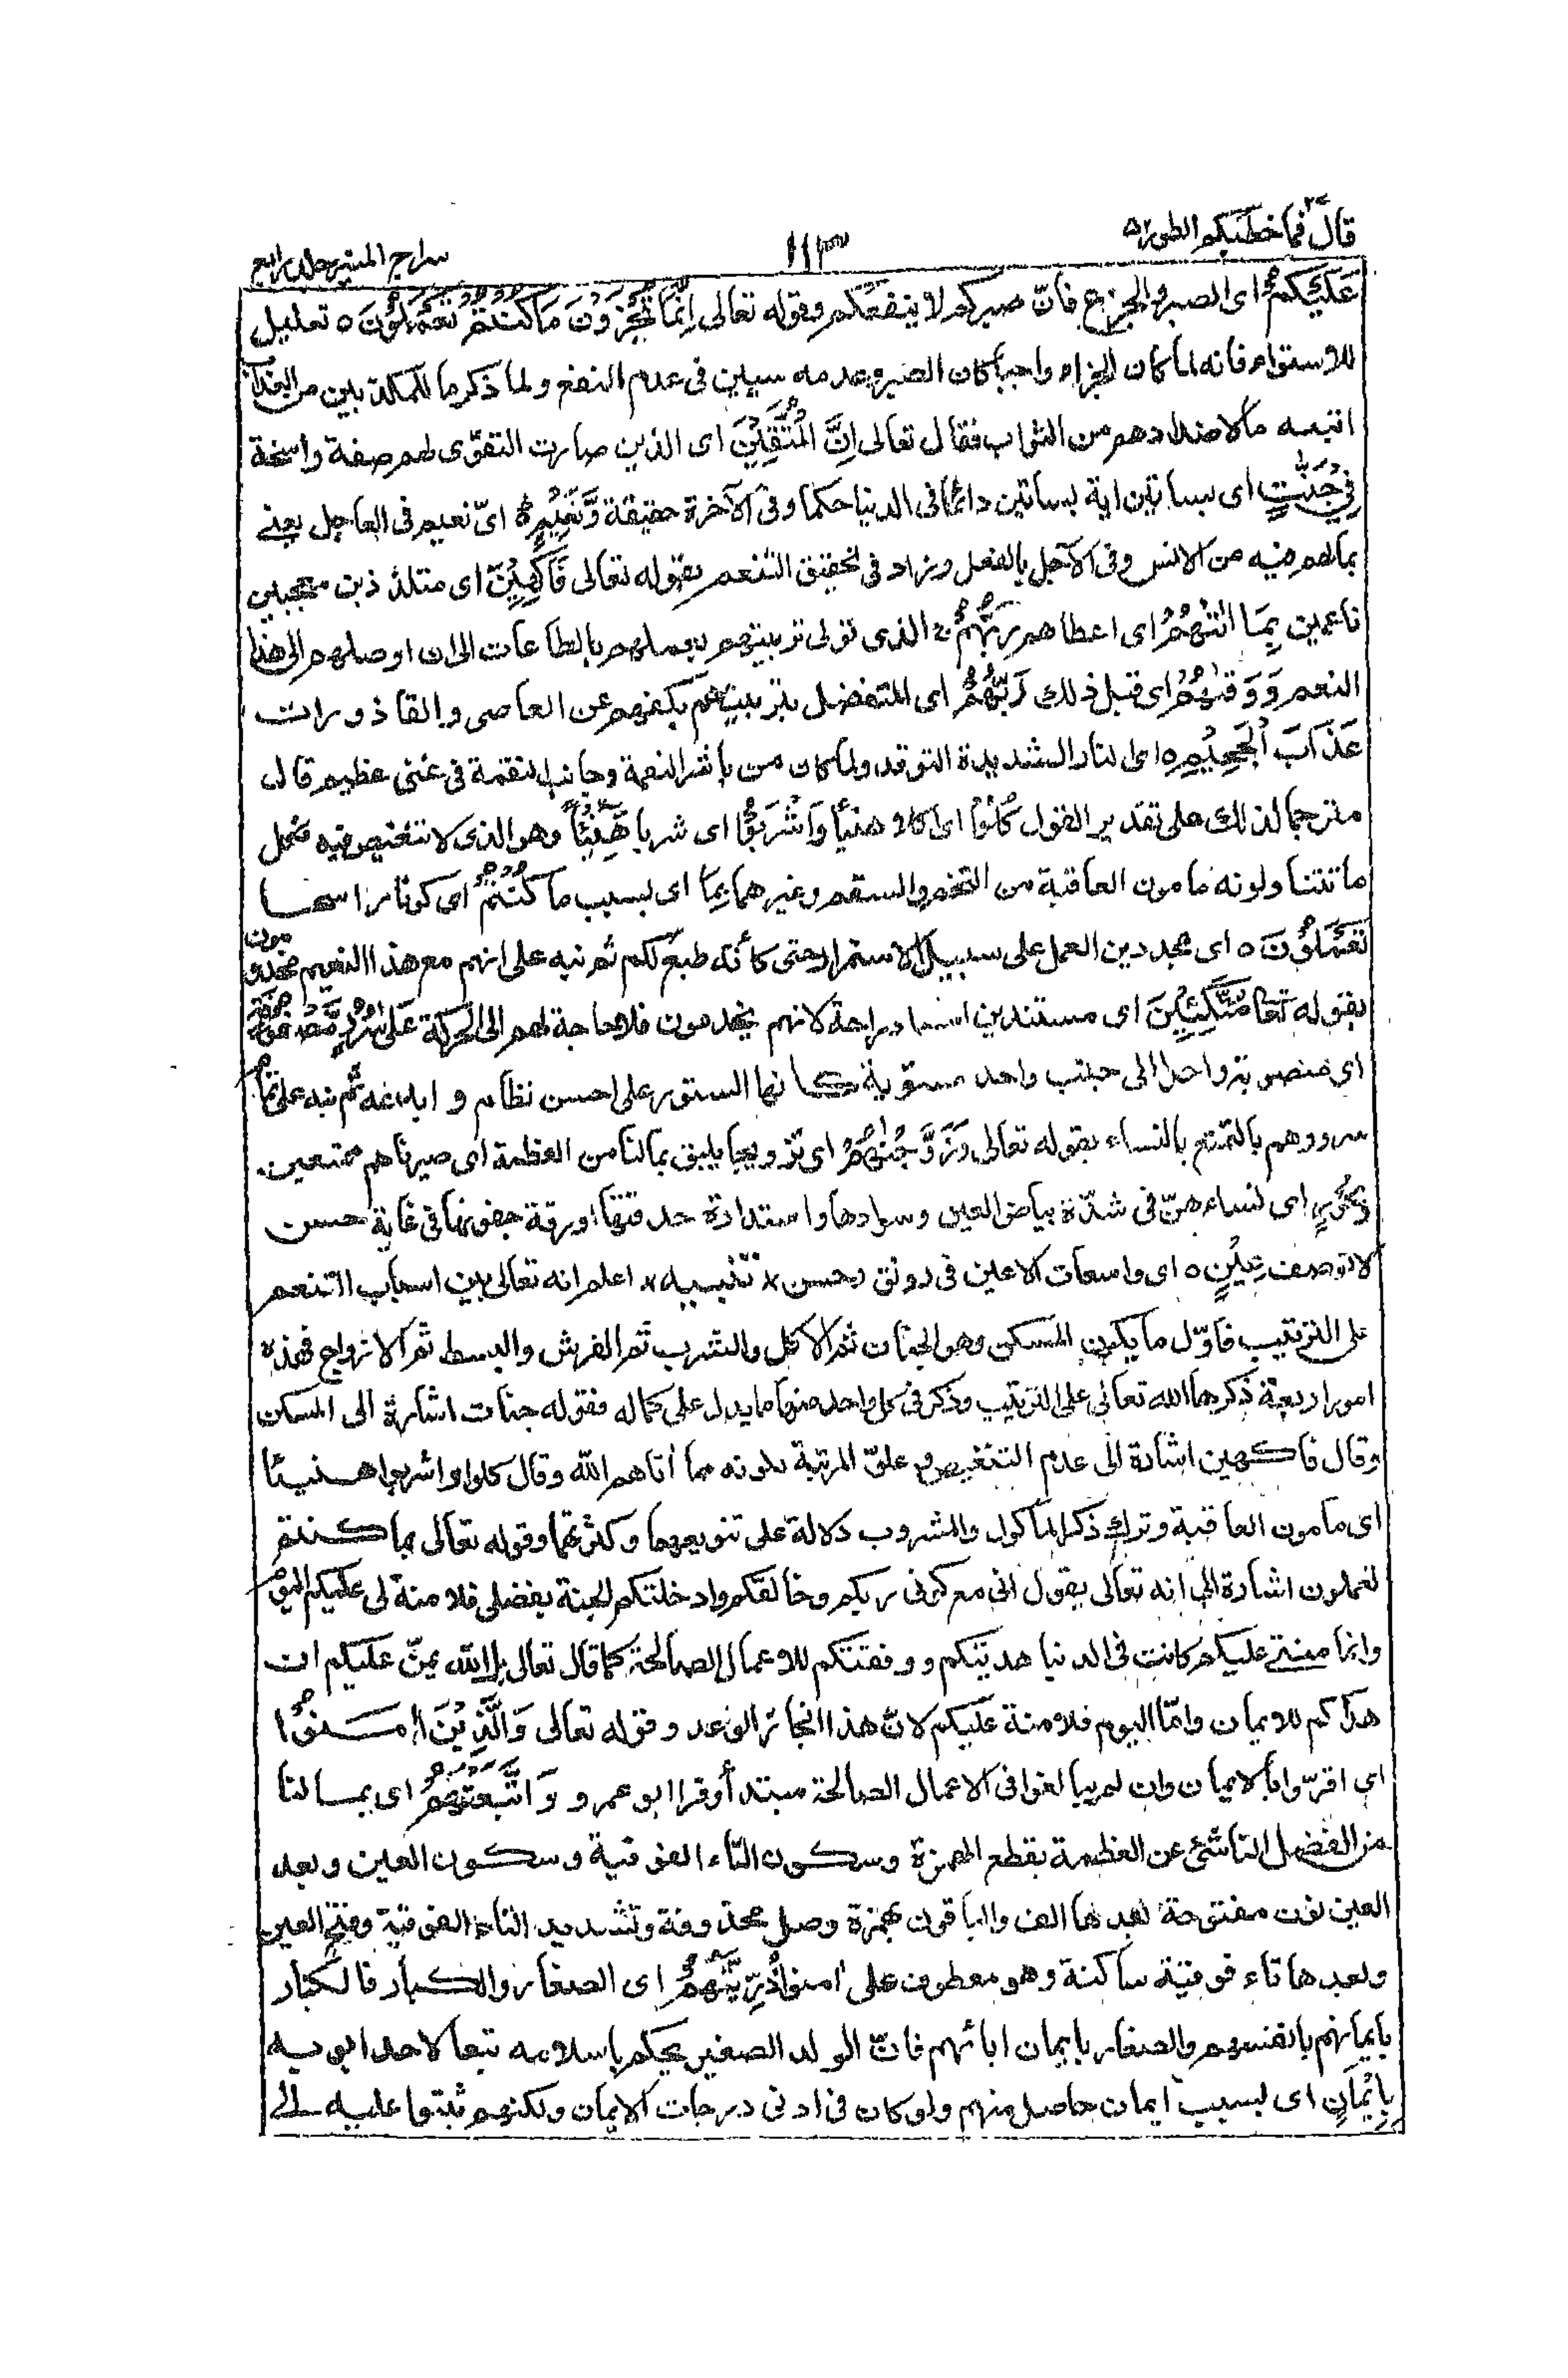 قال فما خطبكم الطور ٥٢
١١٣
سراج المنير جلد رابع
عَلَيْكُمْ اى الصبر والجزع فانّ صبركم لا ينفعكم وقوله تعالى اِنَّمَا تُجْزَوْنَ مَا كُنْتُمْ تَعْمَلُوْنَ ٥ تعليل
للاستواء فانه لما كان الجزاء واجبا كان الصبر وعدمه سيين فى عدم النفع ولما ذكر ما للمكذبين من العذاب
اتبعه ما لاضدادهم من الثواب فقال تعالى اِنَّ الْمُتَّقِيْنَ اى الذين صارت التقوى لهم صفة راسخة
فِيْ جَنّٰتٍ اى بساتين اية بساتين دائما فى الدنيا حكما وفى الآخرة حقيقة وَّنَعِيْمٍ ٥ اىّ نعيم فى العاجل يعنے
بما لهم فيه من الانس وفى الآجل بالفعل وزاد فى تحقيق التنعم بقوله تعالى فَاكِهِيْنَ اى متلذذين معجبين
ناعمين بِمَا اٰتٰىهُمْ اى اعطاهم رَبُّهُمْ الذى تولى تربيتهم بعملهم بالطاعات الى ان اوصلهم الى هذا
النعم وَوَقٰىهُمْ اى قبل ذلك رَبُّهُمْ اى المتفضل بتربيتهم بكفهم عن المعاصى والقاذورات
عَذَابَ الْجَحِيْمِ ٥ اى النار الشديدة التوقد ولما كان من باشر النعمة وجانب النقمة فى غنى عظيم قال
مترجما لذلك على تقدير القول كُلُوْا اى اكلا هنيأ وَاشْرَبُوْا اى شربا هَنِيْٓئًا وهو الذى لا تنغيص فيه فكل
ما تتناولونه مامون العاقبة من التخم والسقم وغيرهما بِمَا اى بسبب ما كُنْتُمْ اى كونا راسخا
تَعْمَلُوْنَ ٥ اى مجددين العمل على سبيل الاستمرار حتى كأنه طبع لكم ثم نبه على انهم مع هذا النعيم مخدومون
بقوله تعا مُتَّكِـِٕيْنَ اى مستندين استناد راحة لانهم يخدمون فلا حاجة لهم الى الحركة عَلٰى سُرُرٍ مَّصْفُوْفَةٍ
اى منصوبة واحدا الى جنب واحد مستوية كانها الستور على احسن نظام و ابدعه ثم نبه على تمام
سرورهم بالتمتع بالنساء بقوله تعالى وَزَوَّجْنٰهُمْ اى تزويجا يليق بما لنا من العظمة اى صيرناهم ممتعين
بِحُوْرٍ اى نساء هنّ فى شدّة بياض العين وسوادها واستدارة حدقتها ورقة جفونها فى غاية حسن
لا توصف عِيْنٍ ٥ اى واسعات الاعين فى رونق وحسن * تنبيه * اعلم انه تعالى بين اسباب التنعم
على الترتيب فاوّل ما يكون المسكن وهو الجنات ثم الاكل والشرب ثم الفرش والبسط ثم الازواج فهذه
امور اربعة ذكرها الله تعالى على الترتيب وذكر فى كل واحد منها ما يدل على كماله فقوله جنات اشارة الى المسكن
وقال فاكهين اشارة الى عدم التنغيص و علوّ المرتبة بكونه مما اتاهم الله وقال كلوا واشربوا هنيئا
اى مامون العاقبة وترك ذكر الماكول والمشروب دلالة على تنويعهما وكثرتهما وقوله تعالى بما كنتم
تعملون اشارة الى انه تعالى يقول انى مع كونى ربكم وخالقكم وادخلتكم الجنة بفضلى فلا منة لى عليكم اليوم
وانما منتى عليكم كانت فى الدنيا هديتكم ووفقتكم للاعمال الصالحة كما قال تعالى بل الله يمنّ عليكم ان
هداكم للايمان وامّا اليوم فلا منة عليكم لانّ هذا انجاز الوعد وقوله تعالى وَالَّذِيْنَ اٰمَنُوْا
اى اقرّوا بالايمان وان لم يبالغوا فى الاعمال الصالحة مبتدأ وقرا ابو عمرو وَ اتَّبَعَتْهُمْ اى بما لنا
من الفضل الناشئ عن العظمة بقطع الهمزة وسكون التاء الفوقية وسكون العين وبعد
العين نون مفتوحة بعدها الف والباقون بهمزة وصل محذوفة وتشديد التاء الفوقية وفتح العين
وبعدها تاء فوقية ساكنة وهو معطوف على اٰمنوا ذُرِّيَّتُهُمْ اى الصغار والكبار فالكبار
بايمانهم بانفسهم والصغار بايمان ابائهم فانّ الولد الصغير يحكم باسلامه تبعا لاحد ابويه
بِاِيْمَانٍ اى بسبب ايمان حاصل منهم ولو كان فى ادنى درجات الايمان ولكنهم ثبتوا عليه الى